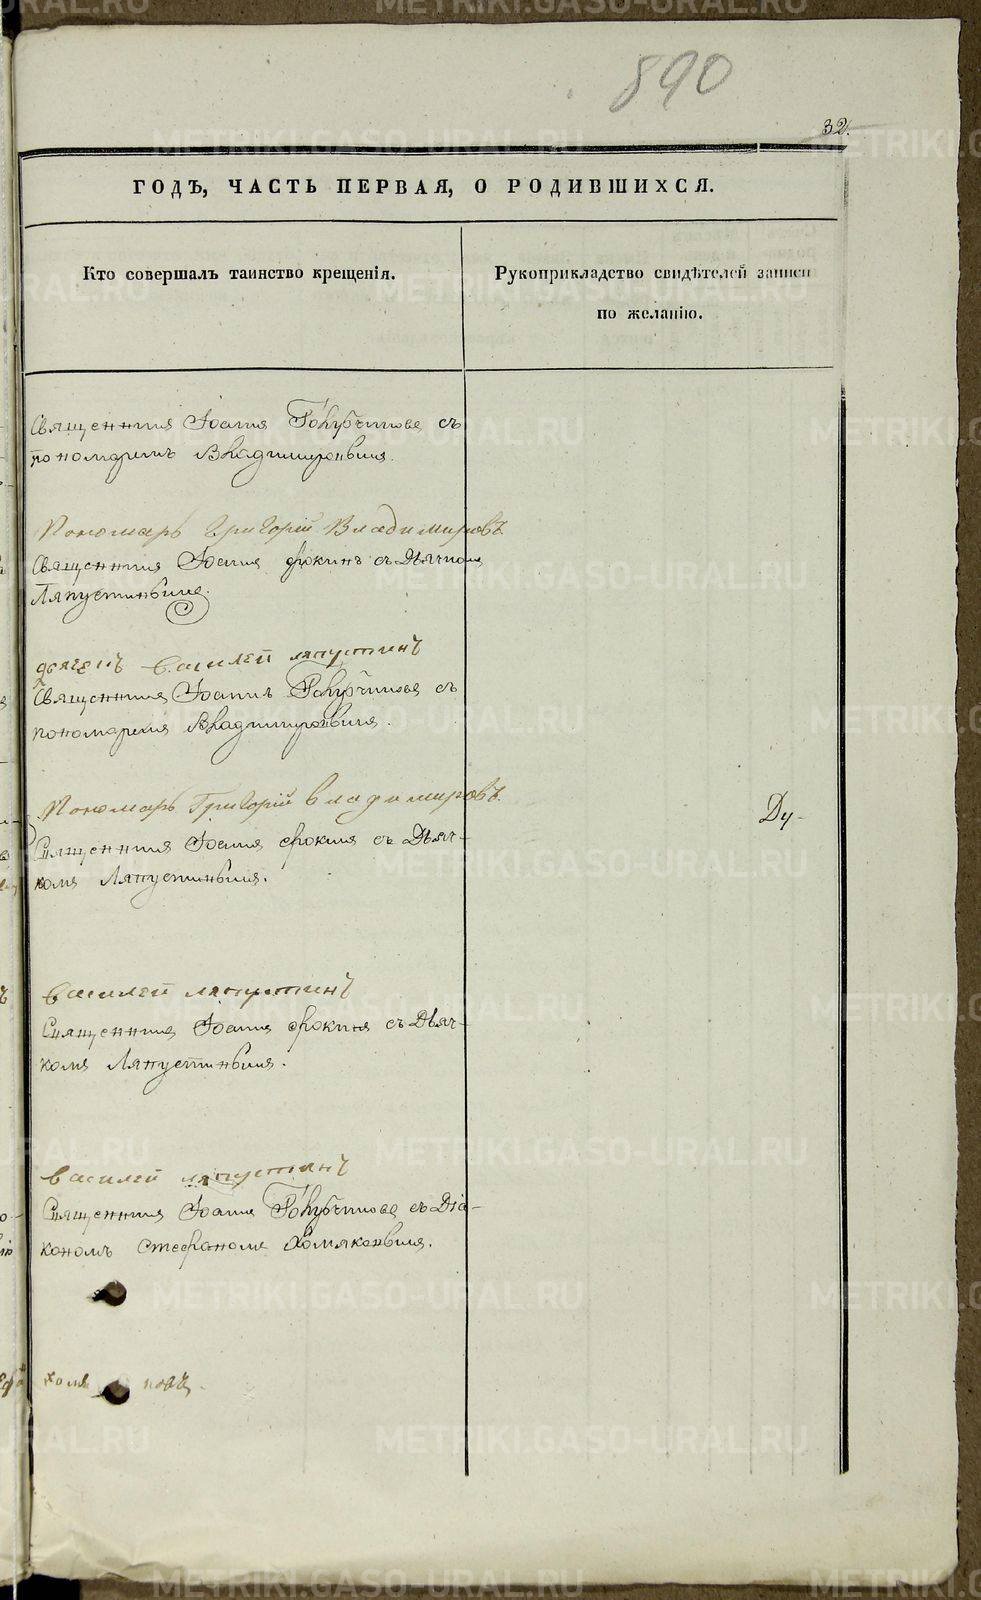 890
32.
ГОДЪ, ЧАСТЬ ПЕРВАЯ, О РОДИВШИХСЯ.
Кто совершалъ таинство крещенія.
Рукоприкладство свидѣтелей записи
по желанію.
Священникъ Іоаннъ Голубчиковъ съ
пономаремъ Владимировымъ.
Пономарь Григорій Владимировъ
Священникъ Іоаннъ Фокинъ съ Дьячкомъ
Ляпустинымъ.
дьячекъ Василей Ляпустинъ
Священникъ Іоаннъ Голубчиковъ съ
пономаремъ Владимировымъ.
Пономарь Григорій Владимировъ
Ду-
Священникъ Іоаннъ Фокинъ съ Дьяч-
комъ Ляпустинымъ.
Василей Ляпустинъ
Священникъ Іоаннъ Фокинъ съ Дьяч-
комъ Ляпустинымъ.
Василей Ляпустинъ
Священникъ Іоаннъ Голубчиковъ съ Діа-
кономъ Стефаномъ Хомяковымъ.
METRIKI.GASO-URAL.RU